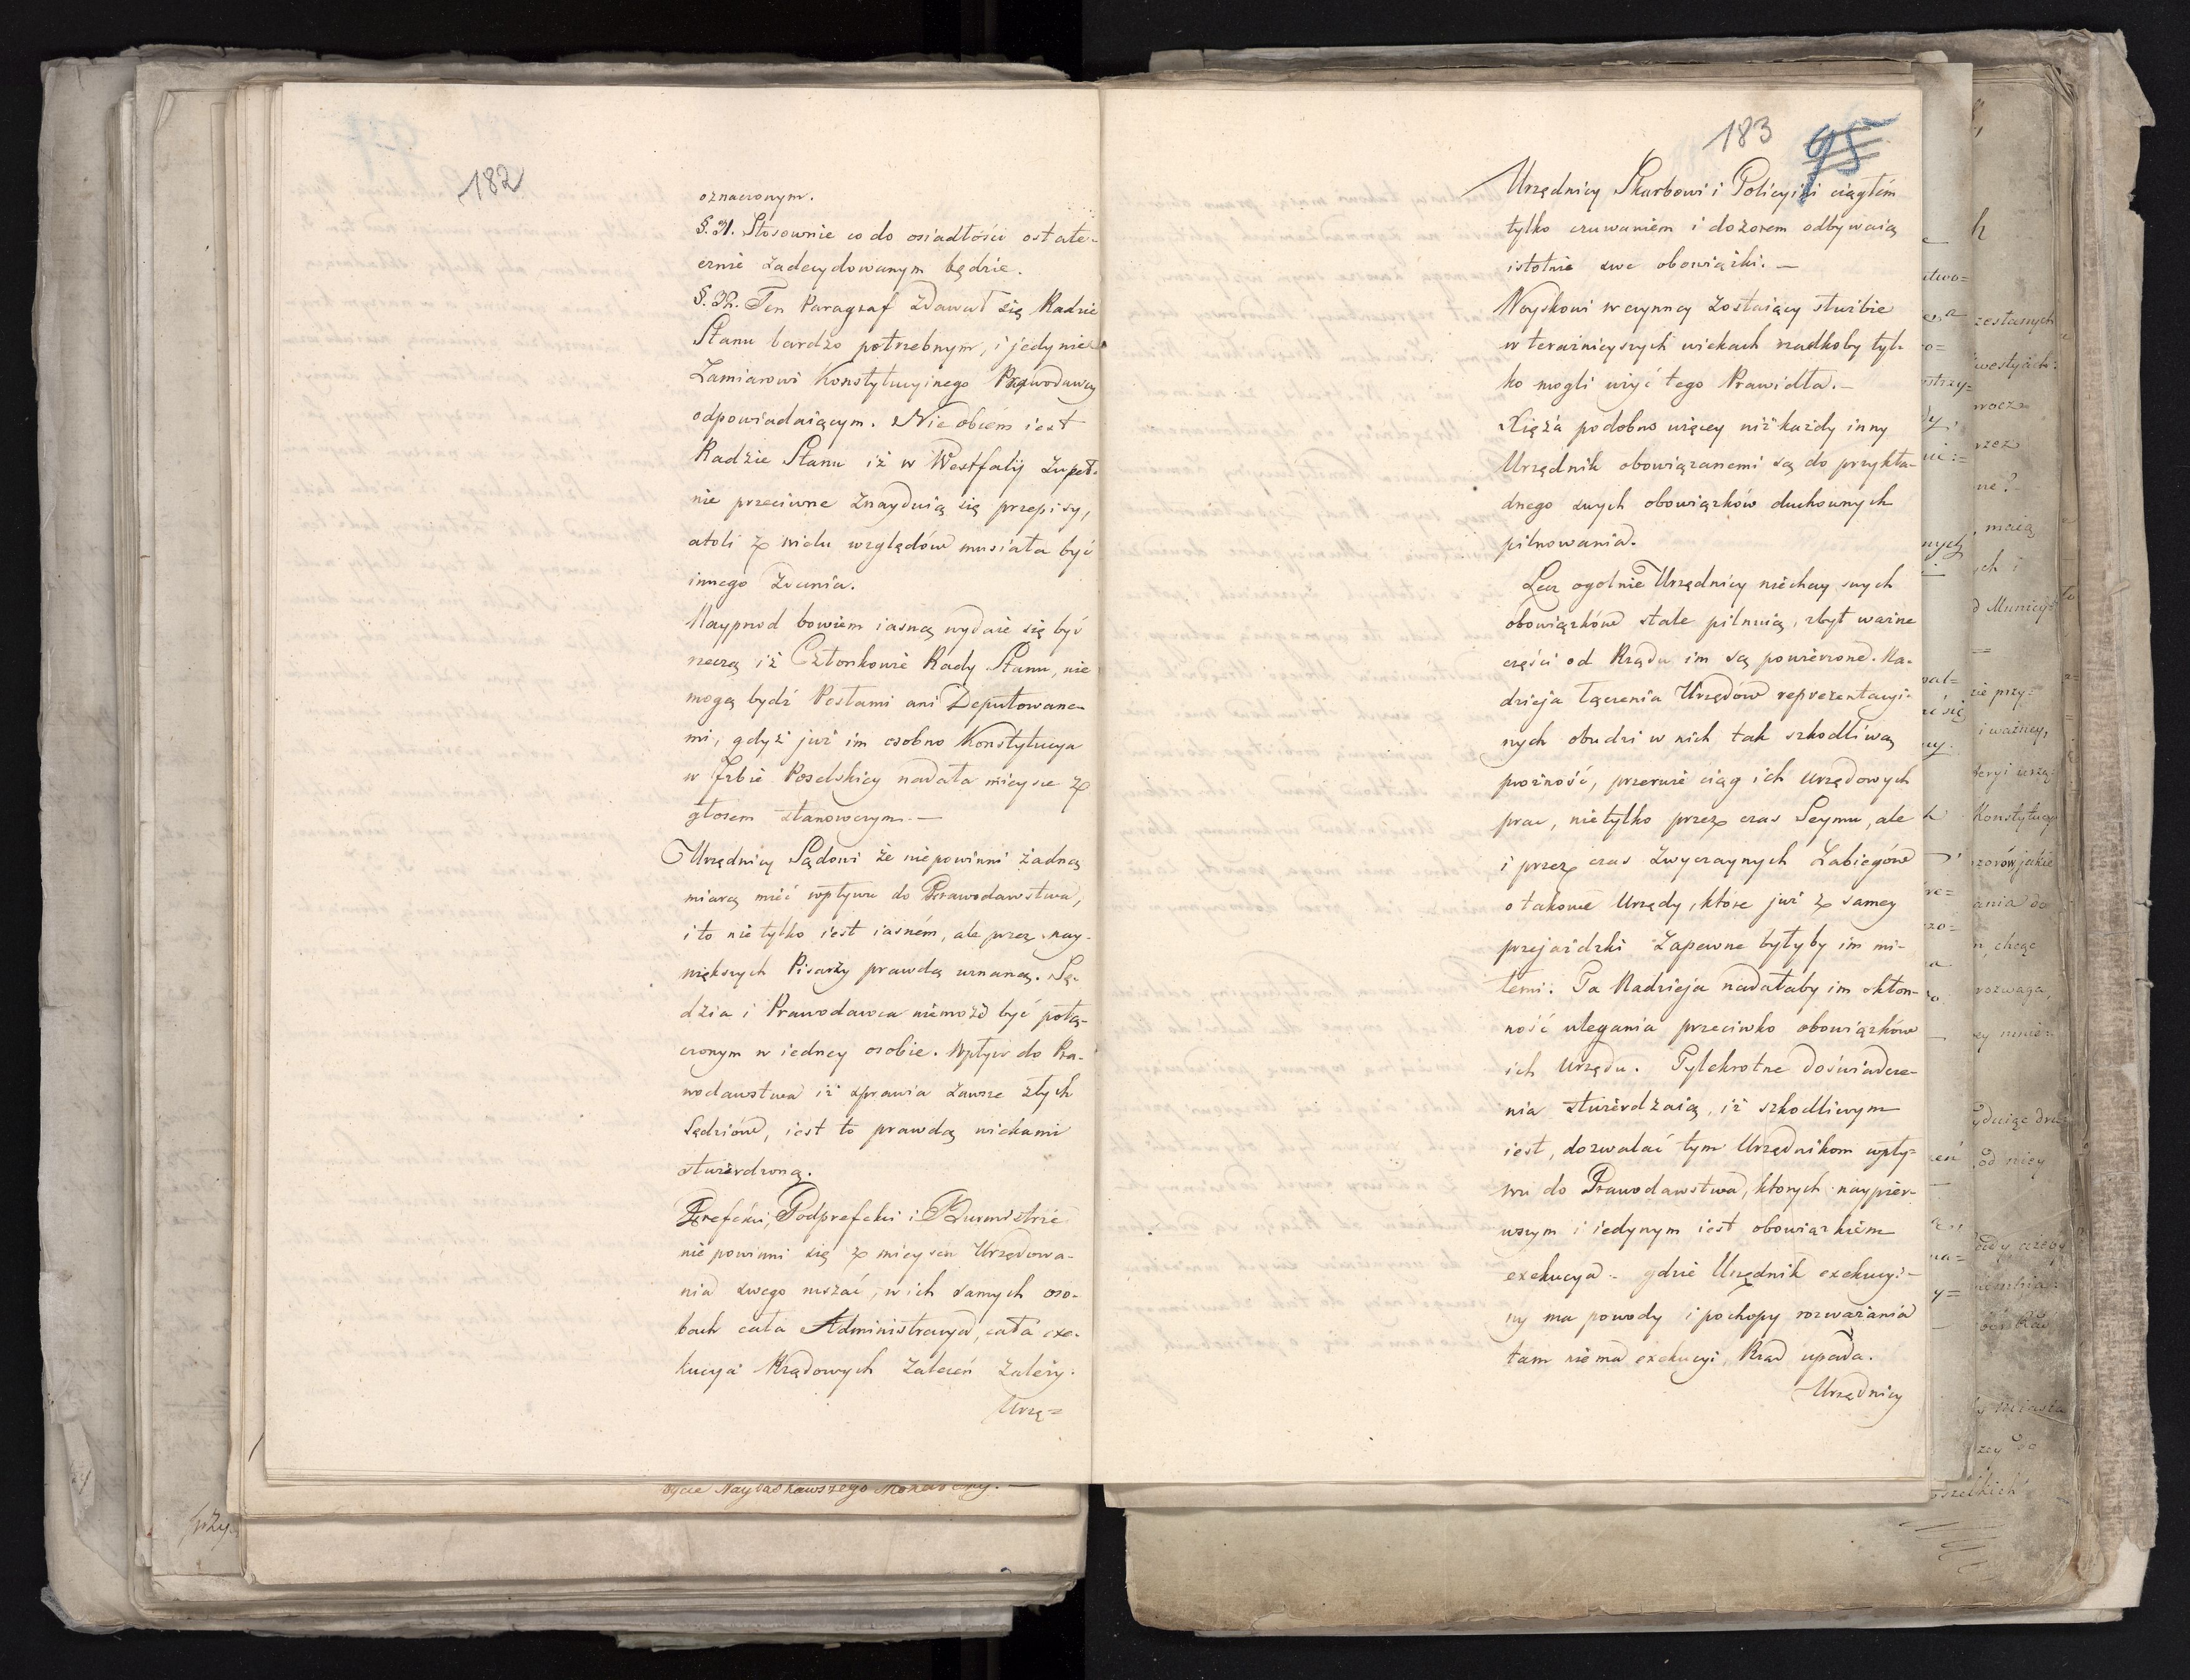 182
oznaczonym.
§. 31. Stosownie co do osiadłości ostate-
cznie zadecydowanym będzie.
§. 32. Ten Paragraf zdawał się Radzie
Stanu bardzo potrzebnym, i jedynie
Zamiarowi Konstytucyinego Prawodawcy
odpowiadaiącym. Nie obcém iest
Radzie Stanu iż w Westfalij zupeł-
nie przeciwne znayduią się przepisy,
atoli z wielu względów musiała być
innego zdania.
Nayprzod bowiem iasną wydaie się być
rzeczą iż Członkowie Rady Stanu, nie
mogą bydź Posłami ani Deputowane-
mi, gdyż już im osobno Konstytucya
w Jzbie Poselskiey nadała mieysce z
głosem stanowczym. —
Urzędnicy Sądowi że niepowinni żadną
miarą mieć wpływu do Prawodawstwa,
i to nie tylko iest iasném, ale przez nay-
większych Pisarzy prawdą uznaną. Sę-
dzia i Prawodawca niemoże być połą-
czonym w iedney osobie. Wpływ do Pra-
wodawstwa iż sprawia zawsze złych
Sędziów, iest to prawdą wiekami
stwierdzoną.
Prefekci, Podprefekci i Burmistrze
niepowinni się z mieysca Urzędowa-
nia swego ruszać, w ich samych oso-
bach cała Administracya, cała exe-
kucya Rządowych zaleceń zależy.
Urzę=
życie Nayłaskawszego Monarchy. —
183 95
Urzędnicy Skarbowi i Policyini ciągłém
tylko czuwaniem i dozorem odbywaią
istotnie swe obowiązki. —
Woyskowi w czynney zostaiący służbie
w teraźnieyszych wiekach rzadkoby tyl-
ko mogli użyć tego Prawidła. —
Xięża podobno więcey niż każdy inny
Urzędnik obowiązanemi są do przykła-
dnego swych obowiązków duchownych
pilnowania.
Lecz ogolnie Urzędnicy niechay swych
obowiązków stale pilnuią, zbyt ważne
części od Rządu im są powierzone. Na-
dzieja łączenia Urzędów reprezentacyi-
nych obudzi w nich tak szkodliwą
prożność, przerwie ciąg ich urzędowych
prac, nietylko przez czas Seymu, ale
i przez czas zwyczaynych Zabiegów
o takowe Urzędy, które już z samey
przejażdzki zapewne byłyby im mi-
łemi. Ta Nadzieja nadałaby im skłon-
ność ulegania przeciwko obowiązków
ich Urzędu. Tylekrotne doświadcze-
nia stwierdzaią, iż szkodliwym
iest, dozwalać tym Urzędnikom wpły-
wu do Prawodawstwa, ktorych naypier-
wszym i iedynym iest obowiązkiem
exekucya — gdzie Urzędnik exekucyi-
ny ma powody i pochopy rozważania
tam niema exekucyi, Rząd upada.
Urzędnicy